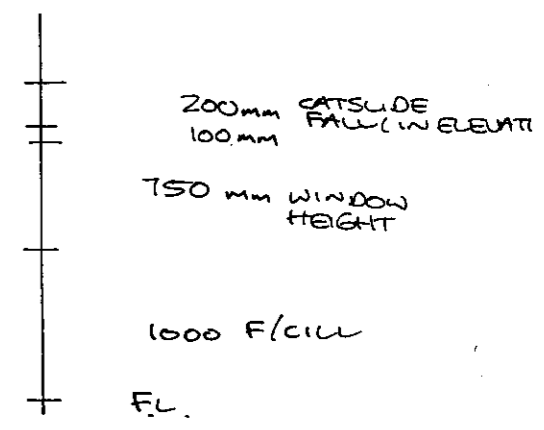 200mm CATSLIDE
FALL (IN ELEVATI
100mm
750 mm WINDOW
HEIGHT
1000 F/CILL
F.L.